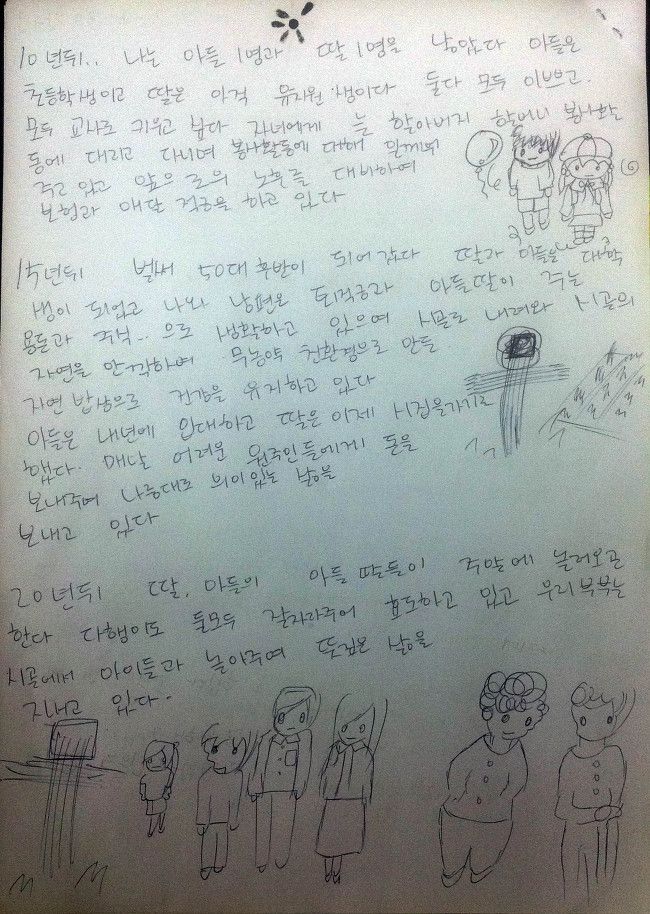 10년뒤.. 나는 아들 1명과 딸 1명을 낳았다 아들은
초등학생이고 딸은 아직 유치원생이다 둘다 모두 이쁘고.
모두 교사로 키우고 싶다 자녀에게 는 할아버지 할머니 봉사활
동에 데리고 다니며 봉사활동에 대해 일깨워
주고 있고 앞으로의 노후를 대비하여
보험과 매달 적금을 하고 있다
15년뒤 벌써 50대 후반이 되어 갔다 딸과 아들은 대학
생이 되었고 나와 남편은 퇴직금과 아들딸이 주는
용돈과 주식..으로 생활하고 있으며 시골로 내려와 시골의
자연을 만끽하며 무농약 친환경으로 만들
자연 밥상으로 건강을 유지하고 있다
아들은 내년에 입대하고 딸은 이제 시집을가기로
했다. 매달 어려운 원주민들에게 돈을
보내주며 나름대로 의미있는 날을
보내고 있다
20년뒤 딸, 아들의 아들 딸들이 주말에 놀러오곤
한다 다행이도 둘모두 잘자라주어 효도하고 있고 우리부부는
시골에서 아이들과 놀아주며 뜻깊은 날을
지내고 있다.